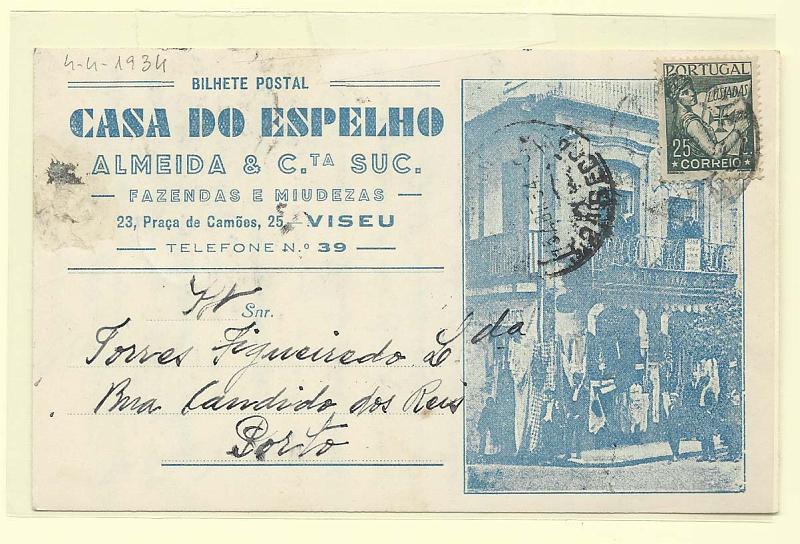 4-4-1934
BILHETE POSTAL
CASA DO ESPELHO
ALMEIDA & C.TA SUC.
FAZENDAS E MIUDEZAS
23, Praça de Camões, 25 - VISEU
TELEFONE N.º 39
PORTUGAL
LUSIADAS
25 C.
CORREIO
Snr.
Torres Figueiredo L.da
Rua Candido dos Reis
Porto